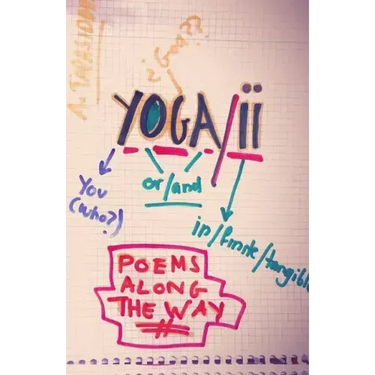 ¿God??
YOGA/ii
or/and
You
(who?)
in/finite/tangible
POEMS
ALONG
THE WAY